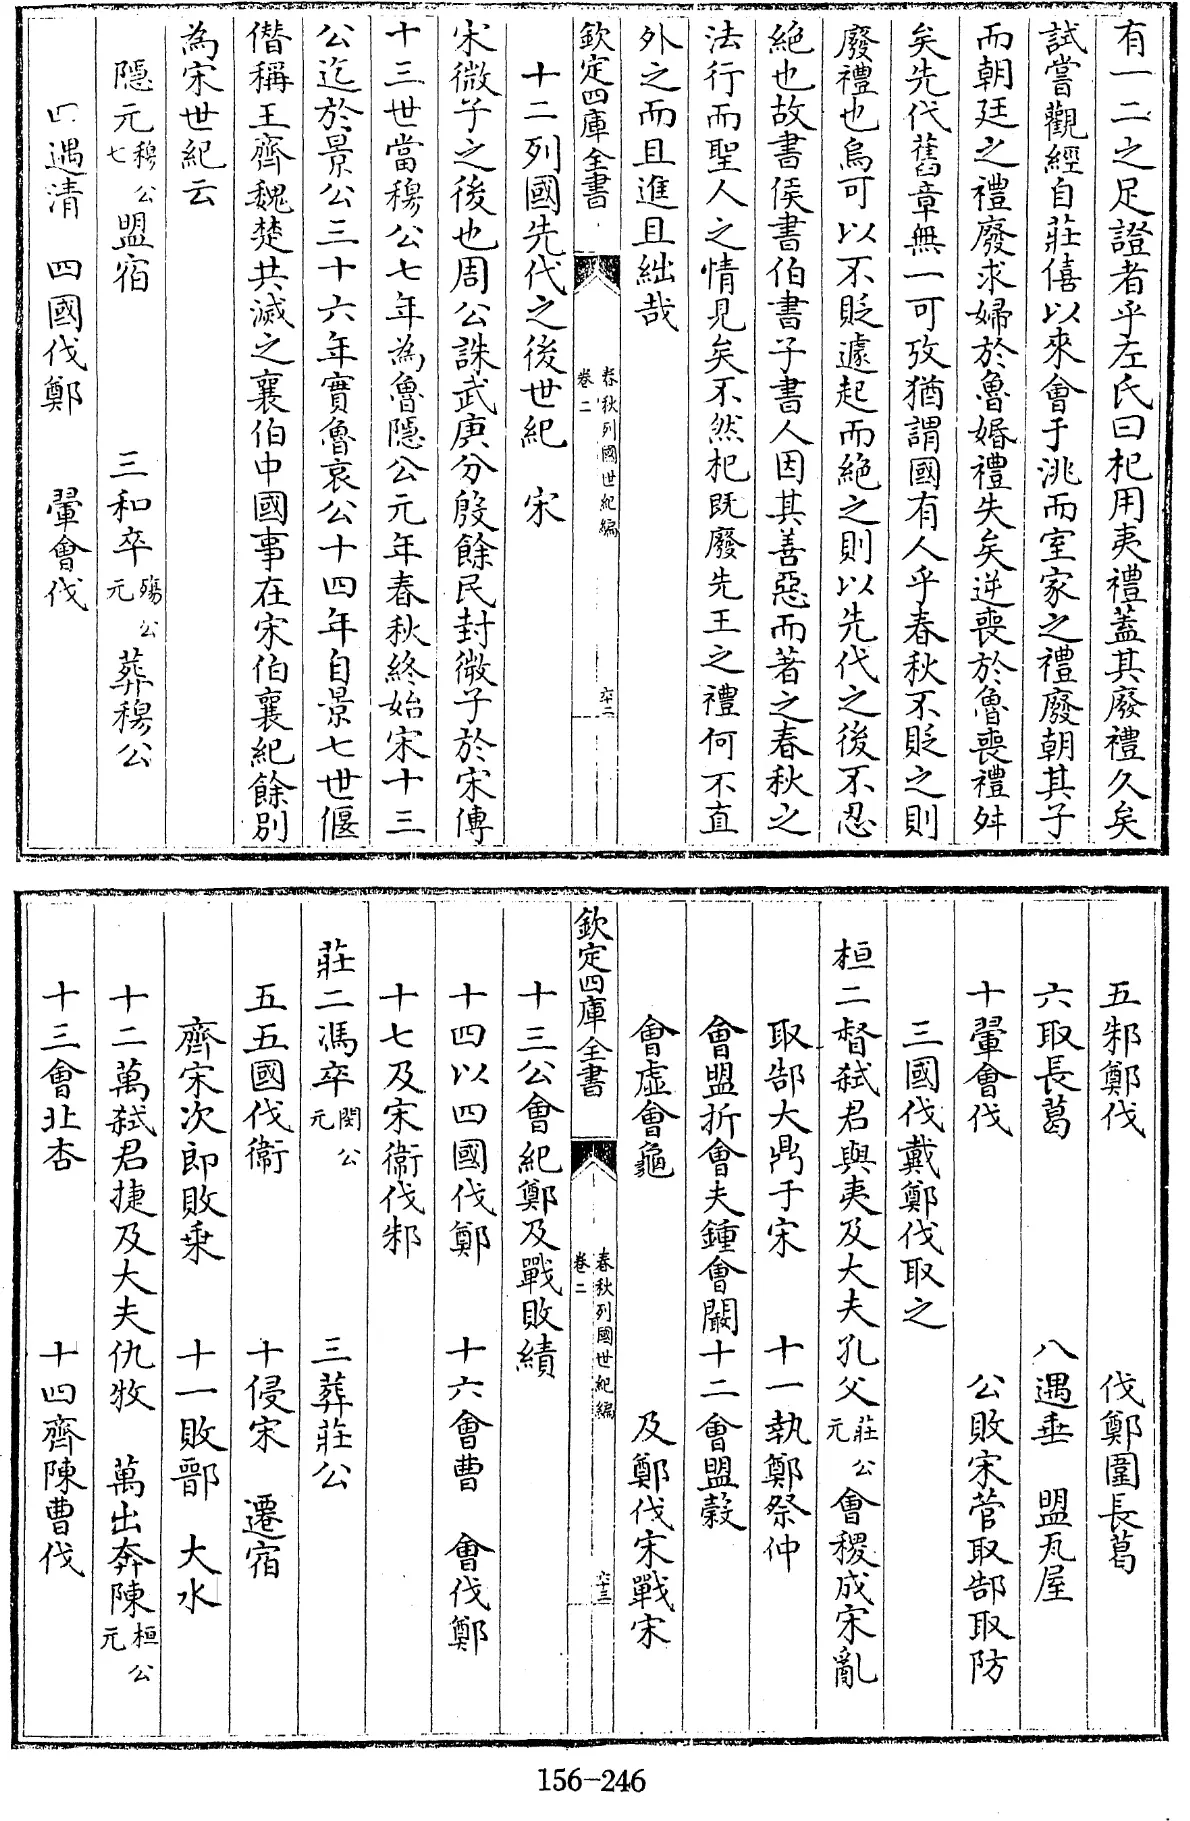 有一二之足證者乎左氏曰杞用夷禮蓋其廢禮久矣
試嘗觀經自莊僖以來會于洮而室家之禮廢朝其子
而朝廷之禮廢求婦於魯婚禮失矣逆喪於魯喪禮舛
矣先代舊章無一可攷猶謂國有人乎春秋不貶之則
廢禮也烏可以不貶遽起而絕之則以先代之後不忍
絕也故書侯書伯書子書人因其善惡而著之春秋之
法行而聖人之情見矣不然杞既廢先王之禮何不直
外之而且進且絀哉
欽定四庫全書 春秋列國世紀編 卷二 六十二
十二列國先代之後世紀 宋
宋微子之後也周公誅武庚分殷餘民封微子於宋傳
十三世當穆公七年為魯隱公元年春秋終始宋十三
公迄於景公三十六年實魯哀公十四年自景七世偃
僭稱王齊魏楚共滅之襄伯中國事在宋伯襄紀餘別
為宋世紀云
隱元穆公七盟宿 三和卒殤公元葬穆公
四遇清 四國伐鄭 翬會伐
五邾鄭伐 伐鄭圍長葛
六取長葛 八遇垂 盟瓦屋
十翬會伐 公敗宋菅取郜取防
三國伐戴鄭伐取之
桓二督弒君與夷及大夫孔父莊公元會稷成宋亂
取郜大鼎于宋 十一執鄭祭仲
會盟折會夫鍾會闞十二會盟穀
會虛會龜 及鄭伐宋戰宋
欽定四庫全書 春秋列國世紀編 卷二 六十三
十三公會紀鄭及戰敗績
十四以四國伐鄭 十六會曹 會伐鄭
十七及宋衞伐邾
莊二馮卒閔公元 三葬莊公
五五國伐衞 十侵宋 遷宿
齊宋次郎敗乘 十一敗鄑 大水
十二萬弒君捷及大夫仇牧 萬出奔陳桓公元
十三會北杏 十四齊陳曹伐
156-246